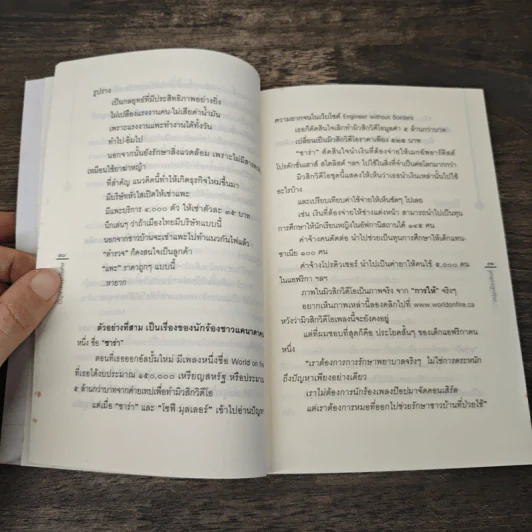 รูปร่าง
เป็นกลยุทธ์ที่มีประสิทธิภาพอย่างยิ่ง
ไม่เปลืองแรงงานคน-ไม่เสียค่าน้ำมัน
เพราะแรงงานแพะทำงานได้ทั้งวัน
ทำไป-อิ่มไป
นอกจากนั้นยังรักษาสิ่งแวดล้อม เพราะไม่มีสารเคมี
เหมือนใช้ยาฆ่าหญ้า
ที่สำคัญ แนวคิดนี้ทำให้เกิดธุรกิจใหม่ขึ้นมา
มีบริษัทหัวใสเปิดให้เช่าแพะ
มีแพะบริการ ๔,๐๐๐ ตัว ให้เช่าตัวละ ๓๕ บาท
นึกเล่นๆ ว่าถ้าเมืองไทยมีบริษัทแบบนี้
นอกจากชาวบ้านจะเช่าแพะไปทำแนวกันไฟแล้ว
"ตำรวจ" ก็คงสนใจเป็นลูกค้า
"แพะ" ราคาถูกๆ แบบนี้
หายาก
ตัวอย่างที่สาม เป็นเรื่องของนักร้องชาวแคนาดา
หนึ่ง ชื่อ "ซาร่า"
ตอนที่เธอออกอัลบั้มใหม่ มีเพลงหนึ่งชื่อ World on
ที่เธอได้งบประมาณ ๑๕๐,๐๐๐ เหรียญสหรัฐ หรือประมาณ
๕ ล้านกว่าบาทจากค่ายเทปเพื่อทำมิวสิกวิดีโอ
แต่เมื่อ "ซาร่า" และ "โซฟี มุลเลอร์" เข้าไปอ่านปัญหา
ความยากจนในเว็บไซต์ Engineer without Borders
เธอก็ตัดสินใจเลิกทำมิวสิกวิดีโอมูลค่า ๕ ล้านกว่าบาท
เปลี่ยนเป็นมิวสิกวิดีโอราคาเพียง บาท
"ซาร่า" ตัดสินใจนำเงินที่ต้องจ่ายให้เมกอัพอาร์ติสต์
โปรดักชั่นเฮาส์ สไตลิสต์ ฯลฯ ไปใช้ในสิ่งที่จำเป็นต่อโลกมากกว่า
มิวสิกวิดีโอชุดนี้แสดงให้เห็นว่าเธอนำเงินเหล่านั้นไปใช้
อะไรบ้าง
และเปรียบเทียบค่าใช้จ่ายให้เห็นชัดๆ ไปเลย
เช่น เงินที่ต้องจ่ายให้ช่างแต่งหน้า สามารถนำไปเป็นทุน
การศึกษาให้นักเรียนหญิงในอัฟกานิสถานได้ คน
ค่าจ้างคนตัดต่อ นำไปช่วยเป็นทุนการศึกษาให้เด็กแทน-
ซาเนีย ๑๐๐ คน
ค่าจ้างโปรดิวเซอร์ นำไปเป็นค่ายาให้คนไข้ ๕,๐๐๐ คน
ในแอฟริกา ฯลฯ
ภาพในมิวสิกวิดีโอเป็นภาพจริง จาก "การให้" จริงๆ
อยากเห็นภาพเหล่านี้ลองคลิกไปที่ www.worldonfire.ca
หวังว่ามิวสิกวิดีโอเพลงนี้จะยังคงอยู่
แต่ที่ผมชอบที่สุดก็คือ ประโยคสั้นๆ ของเด็กแอฟริกาคน
หนึ่ง
"เราต้องการการรักษาพยาบาลจริงๆ ไม่ใช่การตระหนัก
ถึงปัญหาเพียงอย่างเดียว
เราไม่ต้องการนักร้องเพลงป๊อปมาจัดคอนเสิร์ต
แต่เราต้องการหมอที่ออกไปช่วยรักษาชาวบ้านที่ป่วยไข้"